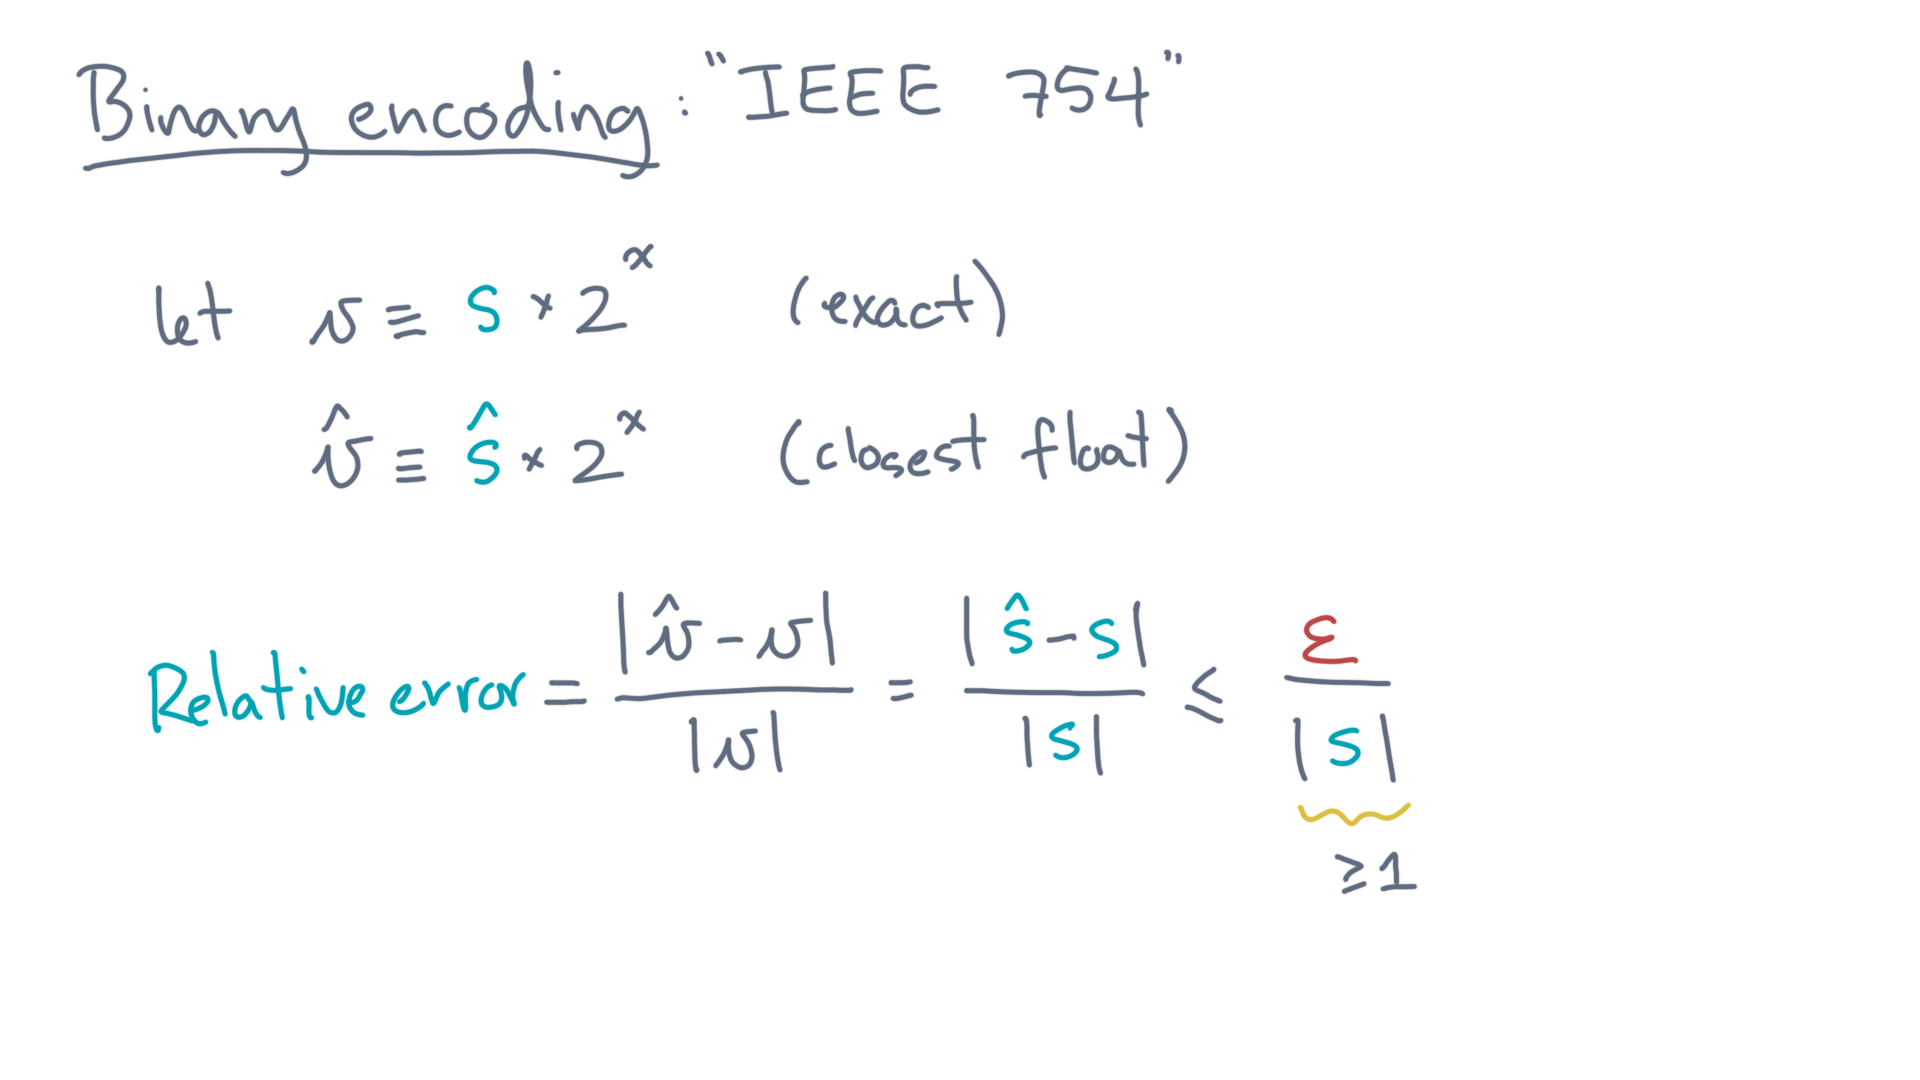 Binary encoding: "IEEE 754"
let v ≡ s × 2^x (exact)
v̂ ≡ ŝ × 2^x (closest float)
Relative error = |v̂ - v| / |v| = |ŝ - s| / |s| ≤ ε / |s|
≥ 1